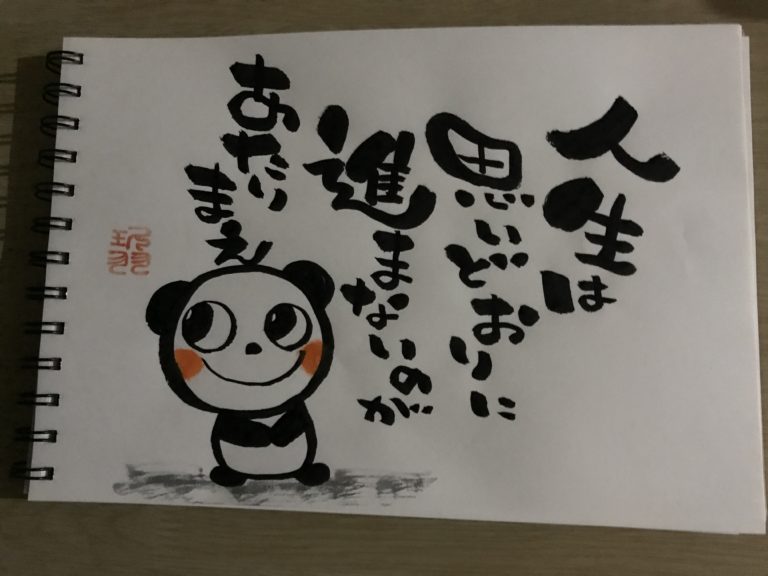 人生は
思いどおりに
進まないのが
あたり
まえ